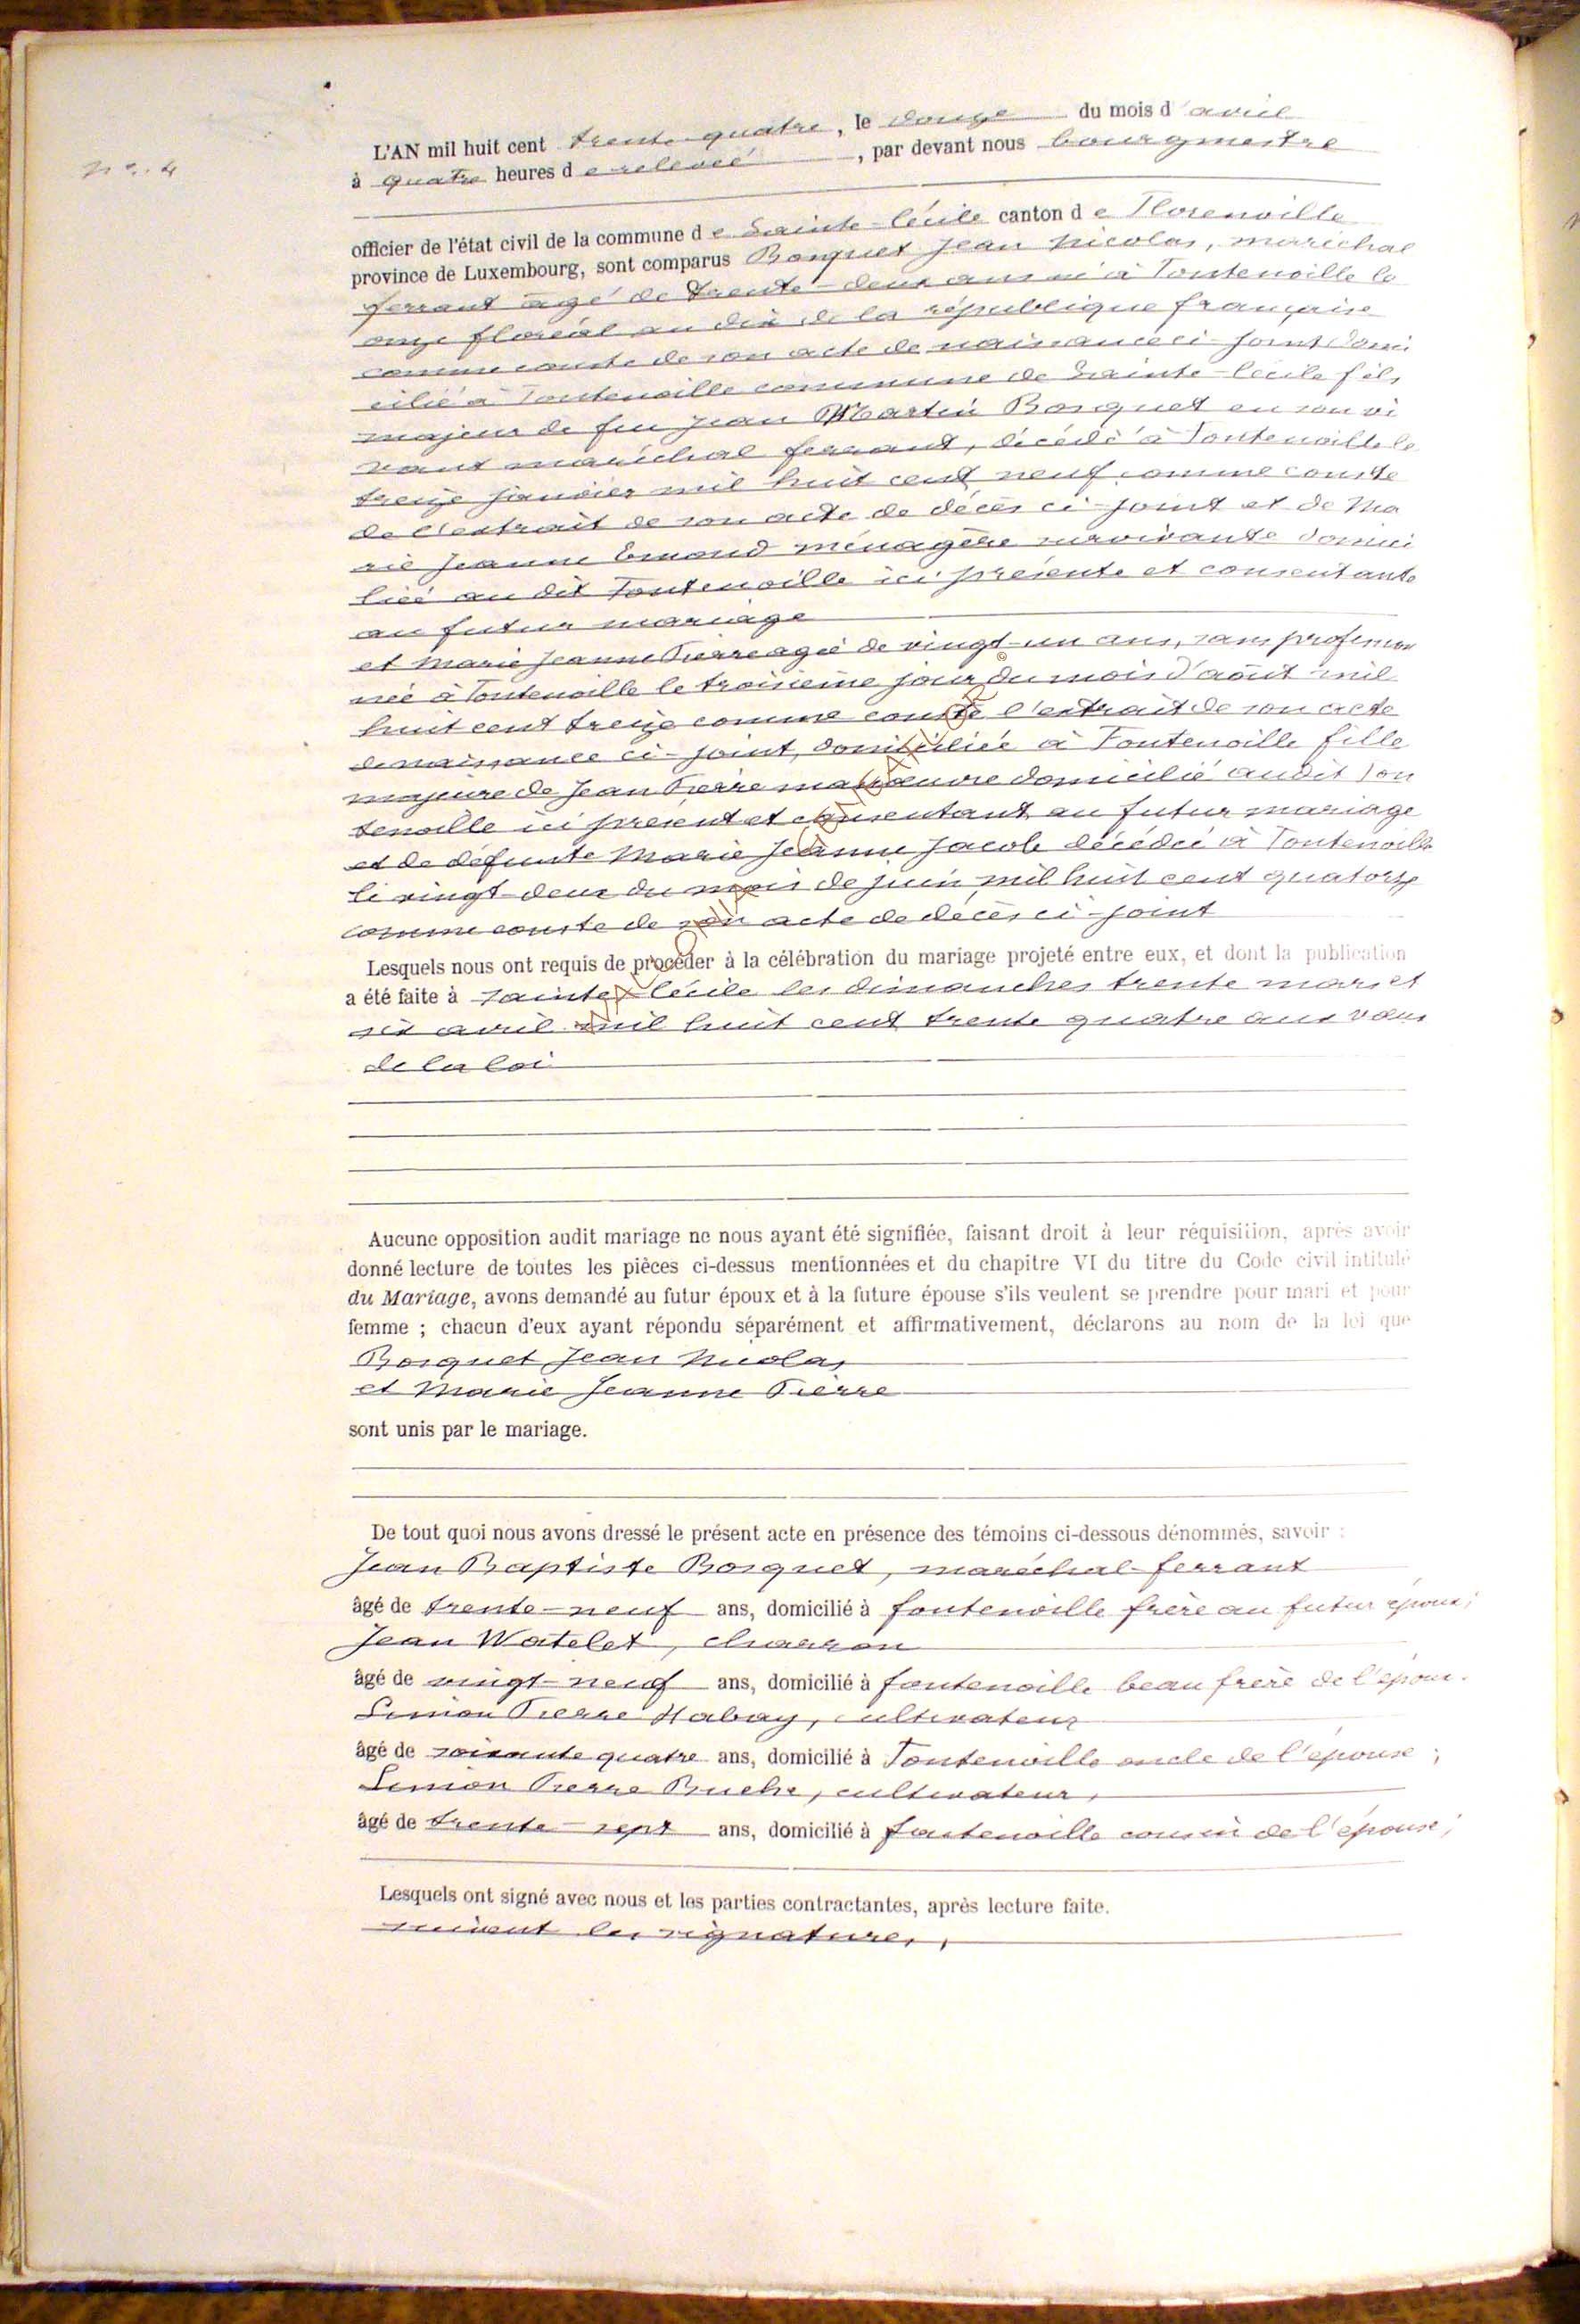 n°. 4
L'AN mil huit cent trente quatre, le douze du mois d'avril
à quatre heures de relevée, par devant nous bourgmestre
officier de l'état civil de la commune de Sainte-Cécile canton de Florenville
province de Luxembourg, sont comparus Bosquet Jean Nicolas, maréchal
ferrant âgé de trente-deux ans né à Fontenoille le
onze floréal an dix de la république française
comme conste de son acte de naissance ci-joint domi
cilié à Fontenoille commune de Sainte-Cécile fils
majeur de feu Jean Martin Bosquet en son vi
vant maréchal ferrant, décédé à Fontenoille le
treize janvier mil huit cent neuf comme conste
de l'extrait de son acte de décès ci-joint et de Ma
rie Jeanne Emond ménagère survivante domici
liée au dit Fontenoille ici présente et consentante
au futur mariage
et Marie Jeanne Pierre agée de vingt-un ans, sans profession
née à Fontenoille le troisième jour du mois d'août mil
huit cent treize comme conste l'extrait de son acte
de naissance ci-joint, domiciliée à Fontenoille fille
majeure de Jean Pierre manœuvre domicilié audit Fon
tenoille ici présent et consentant au futur mariage
et de défunte Marie Jeanne Jacob décédée à Fontenoille
le vingt-deux du mois de juin mil huit cent quatorze
comme conste de son acte de décès ci-joint
Lesquels nous ont requis de procéder à la célébration du mariage projeté entre eux, et dont la publication
a été faite à Sainte Cécile les dimanches trente mars et
six avril mil huit cent trente quatre aux vœux
de la loi
Aucune opposition audit mariage ne nous ayant été signifiée, faisant droit à leur réquisition, après avoir
donné lecture de toutes les pièces ci-dessus mentionnées et du chapitre VI du titre du Code civil intitulé
du Mariage, avons demandé au futur époux et à la future épouse s'ils veulent se prendre pour mari et pour
femme ; chacun d'eux ayant répondu séparément et affirmativement, déclarons au nom de la loi que
Bosquet Jean Nicolas
et Marie Jeanne Pierre
sont unis par le mariage.
De tout quoi nous avons dressé le présent acte en présence des témoins ci-dessous dénommés, savoir :
Jean Baptiste Bosquet, maréchal-ferrant
âgé de trente-neuf ans, domicilié à fontenoille frère au futur époux;
Jean Watelet, charron
âgé de vingt-neuf ans, domicilié à fontenoille beau frère de l'époux.
Simon Pierre Habay, cultivateur
âgé de soixante quatre ans, domicilié à Fontenoille oncle de l'épouse;
Simon Pierre Buche, cultivateur,
âgé de trente-sept ans, domicilié à fontenoille cousin de l'épouse;
Lesquels ont signé avec nous et les parties contractantes, après lecture faite.
suivent les signatures,